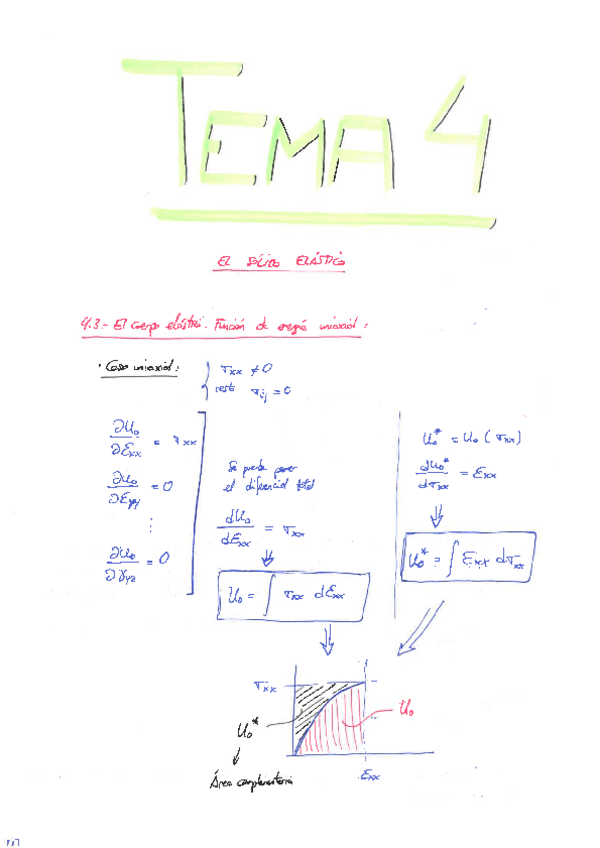 TEMA 4
EL SÓLIDO ELÁSTICO
4.3.- El cuerpo elástico. Función de energía uniaxial:
· Caso uniaxial:
σxx ≠ 0
resto σij = 0
∂U₀/∂Exx = σxx
∂U₀/∂Eyy = 0
⋮
∂U₀/∂γyz = 0
Se puede poner
el diferencial total
dU₀/dExx = σxx
⇓
U₀ = ∫ σxx dExx
U₀* = U₀ (σxx)
dU₀*/dσxx = Exx
⇓
U₀* = ∫ Exx dσxx
σxx
U₀*
U₀
Exx
Área complementaria